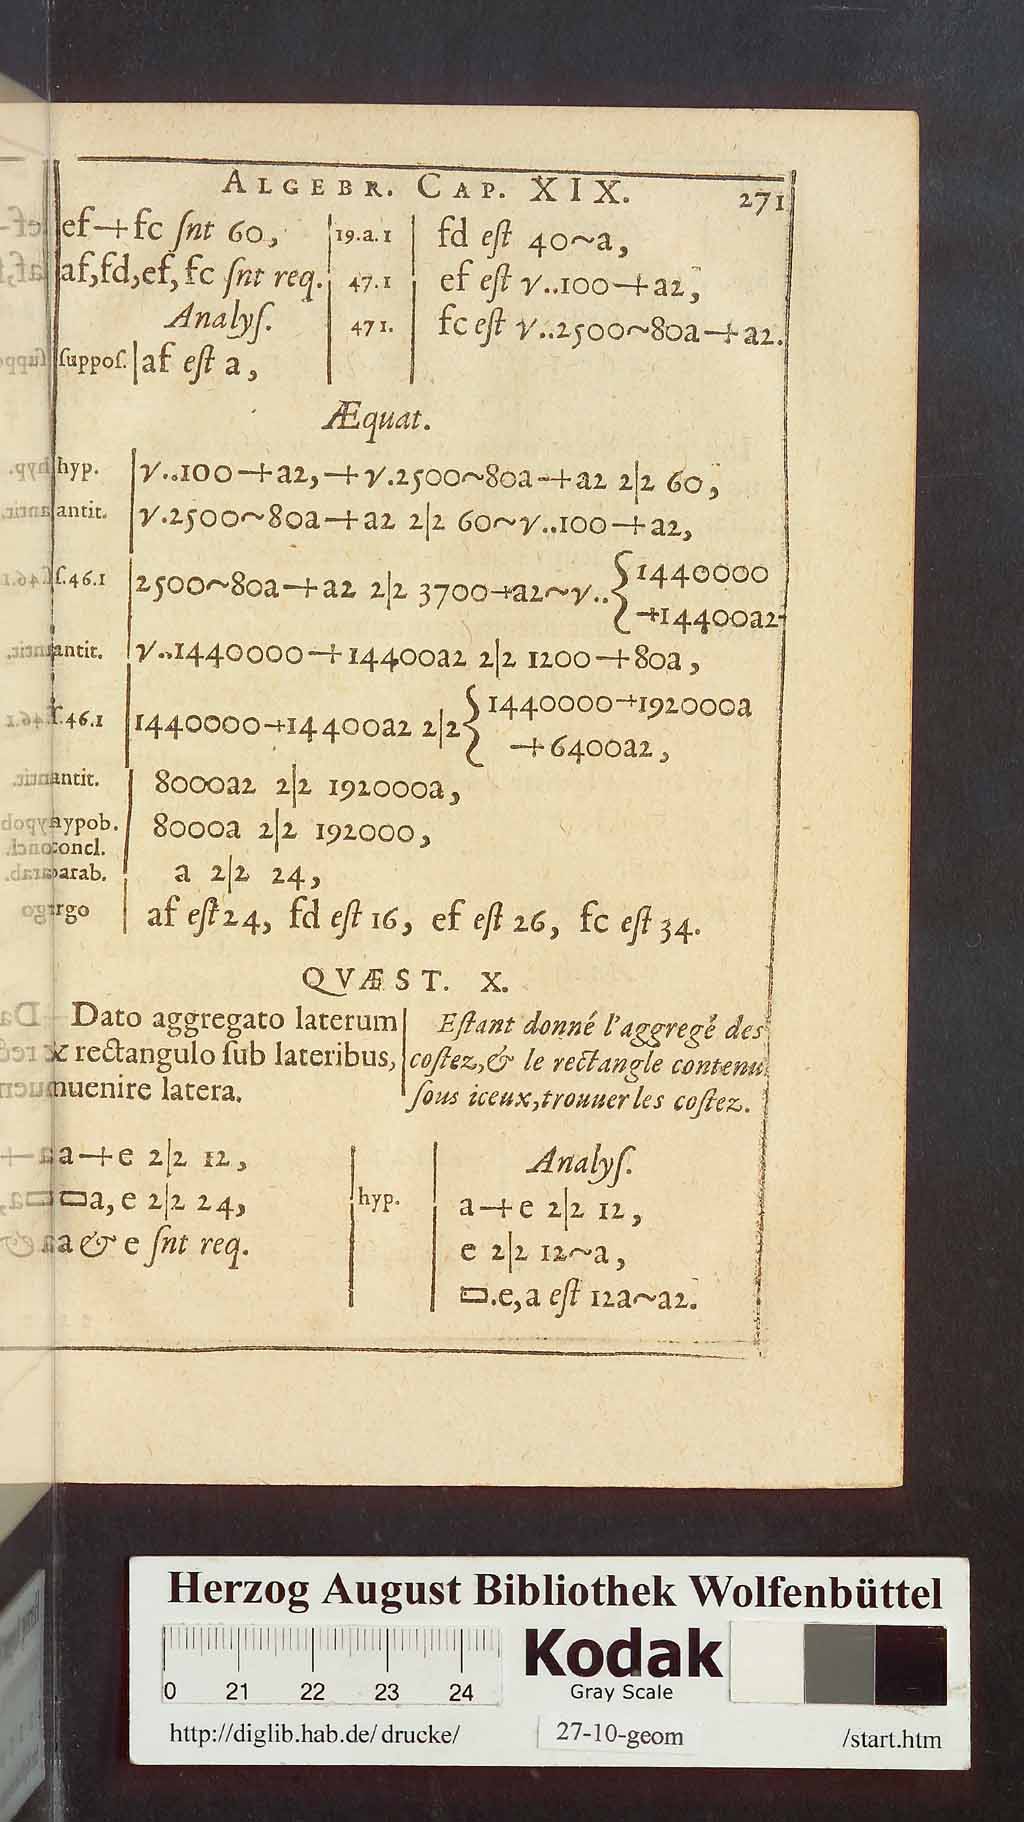 ALGEBR. CAP. XIX. 271
ef+fc ſnt 60,
af,fd,ef,fc ſnt req.
Analyſ.
ſuppoſ. | af eſt a,
19.a.1 | fd eſt 40~a,
47.1 | ef eſt √..100+a2,
471. | fc eſt √..2500~80a+a2.
Æquat.
hyp. | √..100+a2,+√.2500~80a+a2 2|2 60,
antit. | √.2500~80a+a2 2|2 60~√..100+a2,
ſ.46.1 | 2500~80a+a2 2|2 3700+a2~√..{1440000
+14400a2
antit. | √..1440000+14400a2 2|2 1200+80a,
ſ.46.1 | 1440000+14400a2 2|2 {1440000+192000a
+6400a2,
antit. | 8000a2 2|2 192000a,
hypob. | 8000a 2|2 192000,
concl.
parab. | a 2|2 24,
ergo | af eſt 24, fd eſt 16, ef eſt 26, fc eſt 34.
QVÆST. X.
Dato aggregato laterum
& rectangulo ſub lateribus,
inuenire latera.
Eſtant donné l'aggregé des
coſtez,& le rectangle contenu
ſous iceux,trouuer les coſtez.
a+e 2|2 12,
▭a,e 2|2 24,
a & e ſnt req.
Analyſ.
hyp. | a+e 2|2 12,
e 2|2 12~a,
▭.e,a eſt 12a~a2.
Herzog August Bibliothek Wolfenbüttel
0 21 22 23 24
Kodak
Gray Scale
http://diglib.hab.de/drucke/ 27-10-geom /start.htm